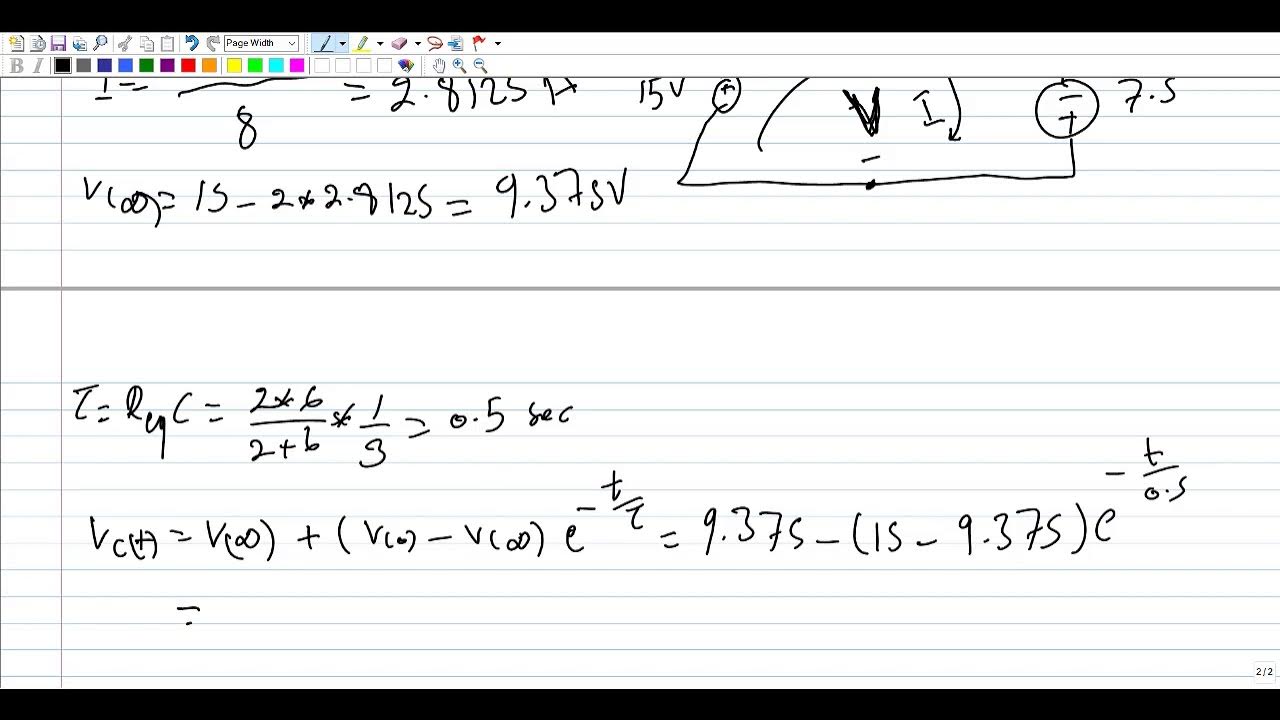 Page Width
B I
I = — = 2.8125 A
8
15V
+
V I
-
- +
7.5
V(∞) = 15 - 2*2.8125 = 9.375V
τ = Req C = 2*6/2+6 * 1/3 = 0.5 sec
Vc(t) = V(∞) + (V(0) - V(∞)) e^-t/τ = 9.375 - (15 - 9.375) e^-t/0.5
=
2/2